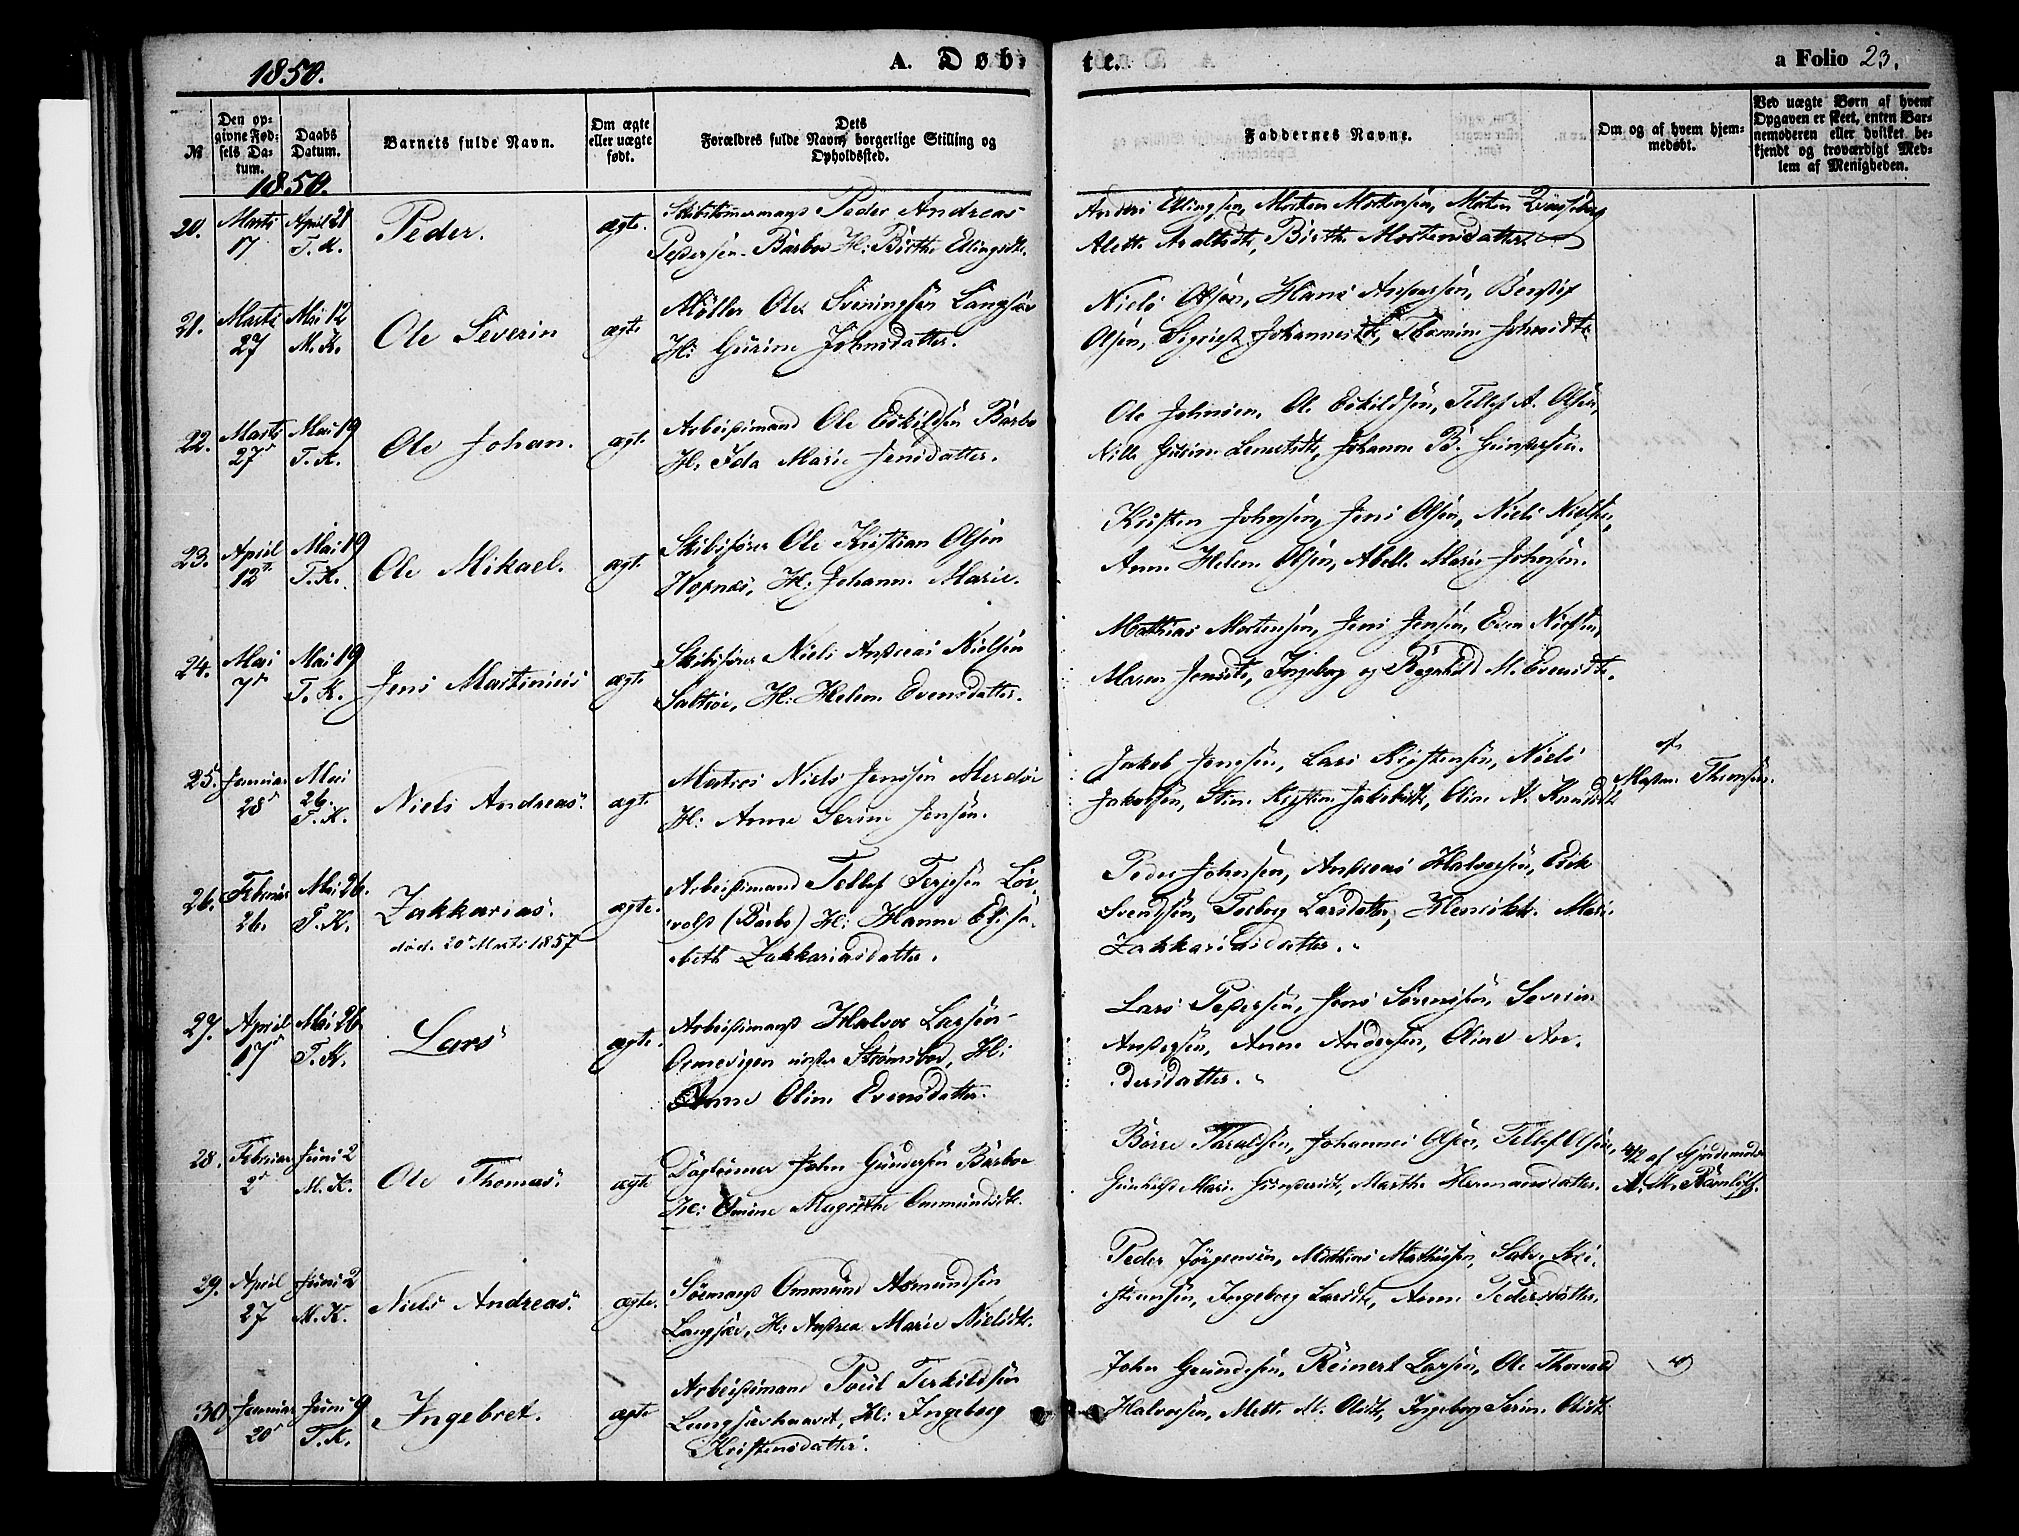 1850.
A. Døb-
te.
a Folio 23.
№
Den op-
givne Fød-
sels Da-
tum.
Daabs
Datum.
Barnets fulde Navn.
Om ægte
eller uægte
født.
Dets
Forældres fulde Navn, borgerlige Stilling og
Opholdssted.
Faddernes Navne.
Om og af hvem hjem-
medøbt.
Ved uægte Børn af hvem
Opgaven er skeet, enten Bar-
nemoderen eller dvistket be-
kjendt og troværdigt Med-
lem af Menigheden.
1850.
20.
Marts
17
April 21
T. K.
Peder.
ægte.
Skibstømermand Peder Andreas
Pedersen Barbo H: Birthe Ellingsdtr.
Ellingsen, Morten Mortensen, Morten
Birthe Mortensdatter
21.
Marts
27
Mai 12
M. K.
Ole Severin
ægte
Møller Ole Sveningsen Langsæe
H: Gurine Johnsdatter.
Niels Olsen, Hans Andersen,
Olsen, Johannesdtr, Johnsdtr
22.
Marts
27
Mai 19
T. K.
Ole Johan.
ægte
Arbeidsmand Ole Eskildsen Barbo
H. Ida Marie Jensdatter.
Ole Johnsen, O. Eskildsen, Tellef A. Olsen,
Johanne B. Gundersen.
23.
April
12
Mai 19
T. K.
Ole Mikael.
ægte
Skibsfører Ole Kristian Olsen
H: Johanne Marie.
Kristen Johnsen, Jens Olsen, Niels
Anne Helene Olsen, Marie Johnsen.
24.
Mai
7
Mai 19
T. K.
Jens Martinius
ægte
Skibsfører Niels Andreas Nielsen
H: Helene Evensdatter.
Mathias Mortensen, Jens Jensen, Even Nielsen,
Maren Jensdtr, Ingeborg og Ragnhild M. Evensdtr.
25.
Januar
28
Mai
26.
T. K.
Niels Andreas.
ægte
Matros Niels Jenssen Merdøe
H: Anne Serine Jensen.
Jakob Jenssen, Lars Kristensen, Niels
Jakobsen, Stine Kirstine Jakobsdtr, Oline A. Knudsdtr
af
Thomsen.
26.
Februar
26.
Mai 26.
T. K.
Zakkarias.
død 20 Marts 1857
ægte.
Arbeidsmand Tellef Terjesen Løv-
vold (Barbo) H: Hanne Elisa-
beth Zakkariasdatter.
Peder Johnsen, Andreas Halvorsen, Erik
Svendsen, Torborg Larsdatter, Henrikke Marie
Zakkariasdatter.
27.
April
17
Mai 26
T. K.
Lars
ægte.
Arbeidsmand Halvor Larsen
under Strømsboe, H:
Anne Oline Evensdatter.
Lars Pedersen, Jens Sørensen, Severin
Andersen, Anne Andersen, Oline An-
dersdatter.
28.
Februar
2
Juni 2
M. K.
Ole Thomas.
ægte
Dagleier John Gundersen Barboe
H: Magrethe Ommundsdtr.
Børre Taraldsen, Johannes Olsen, Tellef Olsen,
Gunhild Marie Gundersdtr, Marthe Hermandsdatter.
af Gjordemoder
29.
April
27
Juni 2
M. K.
Niels Andreas.
ægte.
Sømand Ommund Asmundsen
Langsæe, H: Andrea Marie Nielsdtr.
Peder Jørgensen, Mathias Mathisen, Salve Kri-
stiansen, Ingeborg Larsdtr, Anne Pedersdatter.
30
Januar
20
Juni 9
T. K.
Ingebret.
ægte
Arbeidsmand Poul Terkildsen
Langsæe H: Ingeborg
Kristensdatter.
John Gundersen, Reinert Larsen, Ole Thomas
Halvorsen, Mette M. Olsdtr, Ingeborg Serine Olsdtr